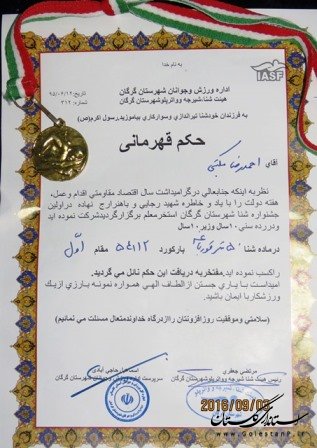 به نام خدا
IASF
تاریخ: ۹۵/۰۶/۱۲
شماره: ۳۱۲
اداره ورزش و جوانان شهرستان گرگان
هیئت شنا، شیرجه و واترپلو شهرستان گرگان
به فرزندان خود شنا تیراندازی و سوارکاری بیاموزید. رسول اکرم (ص)
حکم قهرمانی
آقای احمدرضا
نظر به اینکه جنابعالی در گرامیداشت سال اقتصاد مقاومتی اقدام و عمل،
هفته دولت را با یاد و خاطره شهید رجایی و باهنر ارج نهاده در اولین
جشنواره شنا شهرستان گرگان استخر معلم برگزار گردید شرکت نموده اید
و در رده سنی ۱۰ سال و زیر ۱۰ سال
در ماده شنا ۵۰ متر با رکورد مقام اول
را کسب نموده اید. مفتخر به دریافت این حکم نائل می گردید.
امید است با یاری جستن از الطاف الهی همواره نمونه بارزی از یک
ورزشکار با ایمان باشید.
(سلامتی و موفقیت روز افزونتان را از درگاه خداوند متعال مسئلت می نمائیم)
مرتضی جعفری
رئیس هیئت شنا، شیرجه و واترپلو شهرستان گرگان
اسماعیل حاجی آبادی
سرپرست اداره ورزش و جوانان شهرستان گرگان
2016/09/03
استانداری گلستان